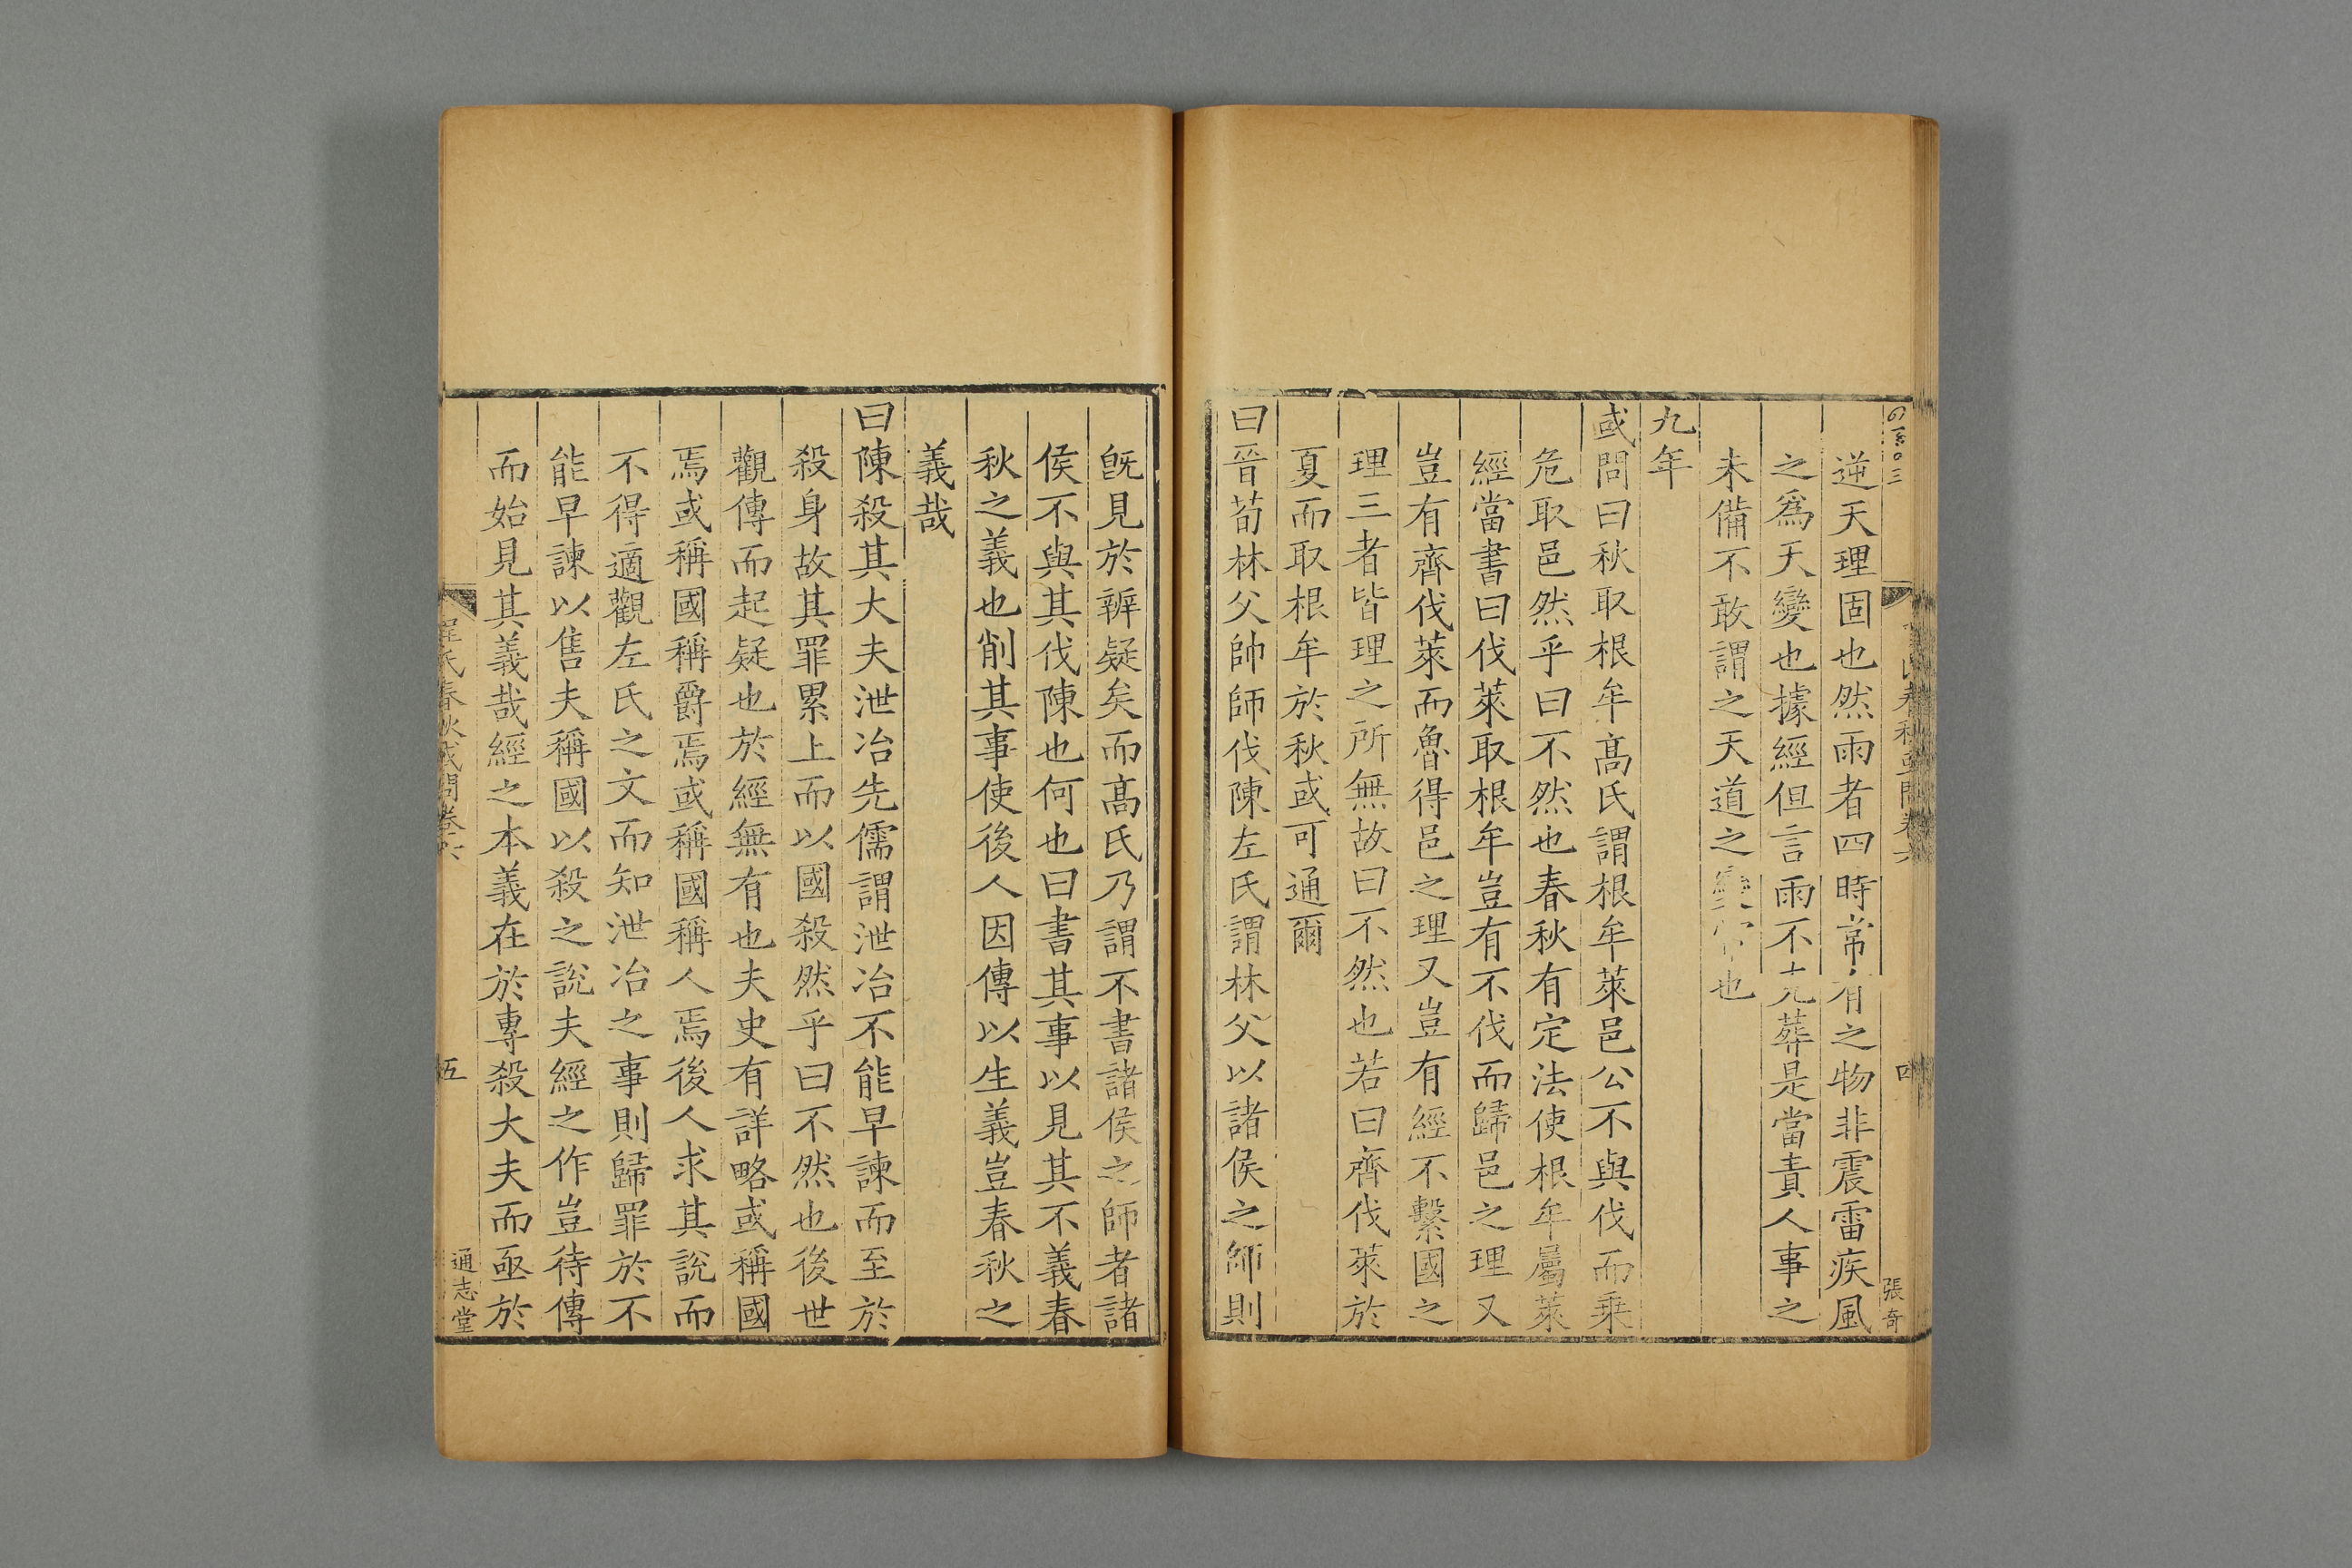 逆天理固也然雨者四時常有之物非震雷疾風
之為天變也據經但言雨不克葬是當責人事之
未備不敢謂之天道之變常也
九年
或問曰秋取根牟髙氏謂根牟萊邑公不與伐而乗
危取邑然乎曰不然也春秋有定法使根牟屬萊
經當書曰伐萊取根牟豈有不伐而歸邑之理又
豈有齊伐萊而魯得邑之理又豈有經不繫國之
理三者皆理之所無故曰不然也若曰齊伐萊於
夏而取根牟於秋或可通爾
曰晉荀林父帥師伐陳左氏謂林父以諸侯之師則
旣見於辨疑矣而髙氏乃謂不書諸侯之師者諸
侯不與其伐陳也何也曰書其事以見其不義春
秋之義也削其事使後人因傳以生義豈春秋之
義哉
曰陳殺其大夫泄冶先儒謂泄冶不能早諫而至於
殺身故其罪累上而以國殺然乎曰不然也後世
觀傳而起疑也於經無有也夫史有詳略或稱國
焉或稱國稱爵焉或稱國稱人焉後人求其說而
不得適觀左氏之文而知泄冶之事則歸罪於不
能早諫以售夫稱國以殺之說夫經之作豈待傳
而始見其義哉經之本義在於專殺大夫而亟於
程氏春秋或問卷六
五
通志堂
四
張奇